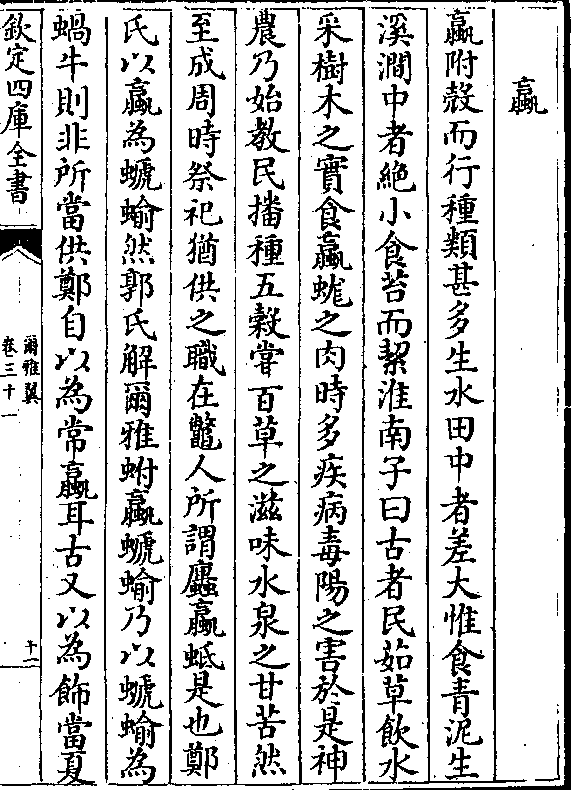 蠃
蠃附殼而行種類甚多生水田中者差大惟食青泥生
溪澗中者絶小食苔而絜淮南子曰古者民茹草飲水
采樹木之實食蠃蛖之肉時多疾病毒陽之害於是神
農乃始教民播種五穀嘗百草之滋味水泉之甘苦然
至成周時祭祀猶供之職在鼈人所謂蠯蠃蚳是也鄭
氏以蠃為螔蝓然郭氏解爾雅蚹蠃螔蝓乃以螔蝓為
蝸牛則非所當供鄭自以為常蠃耳古又以為飾當夏
欽定四庫全書
爾雅翼
卷三十一
十二